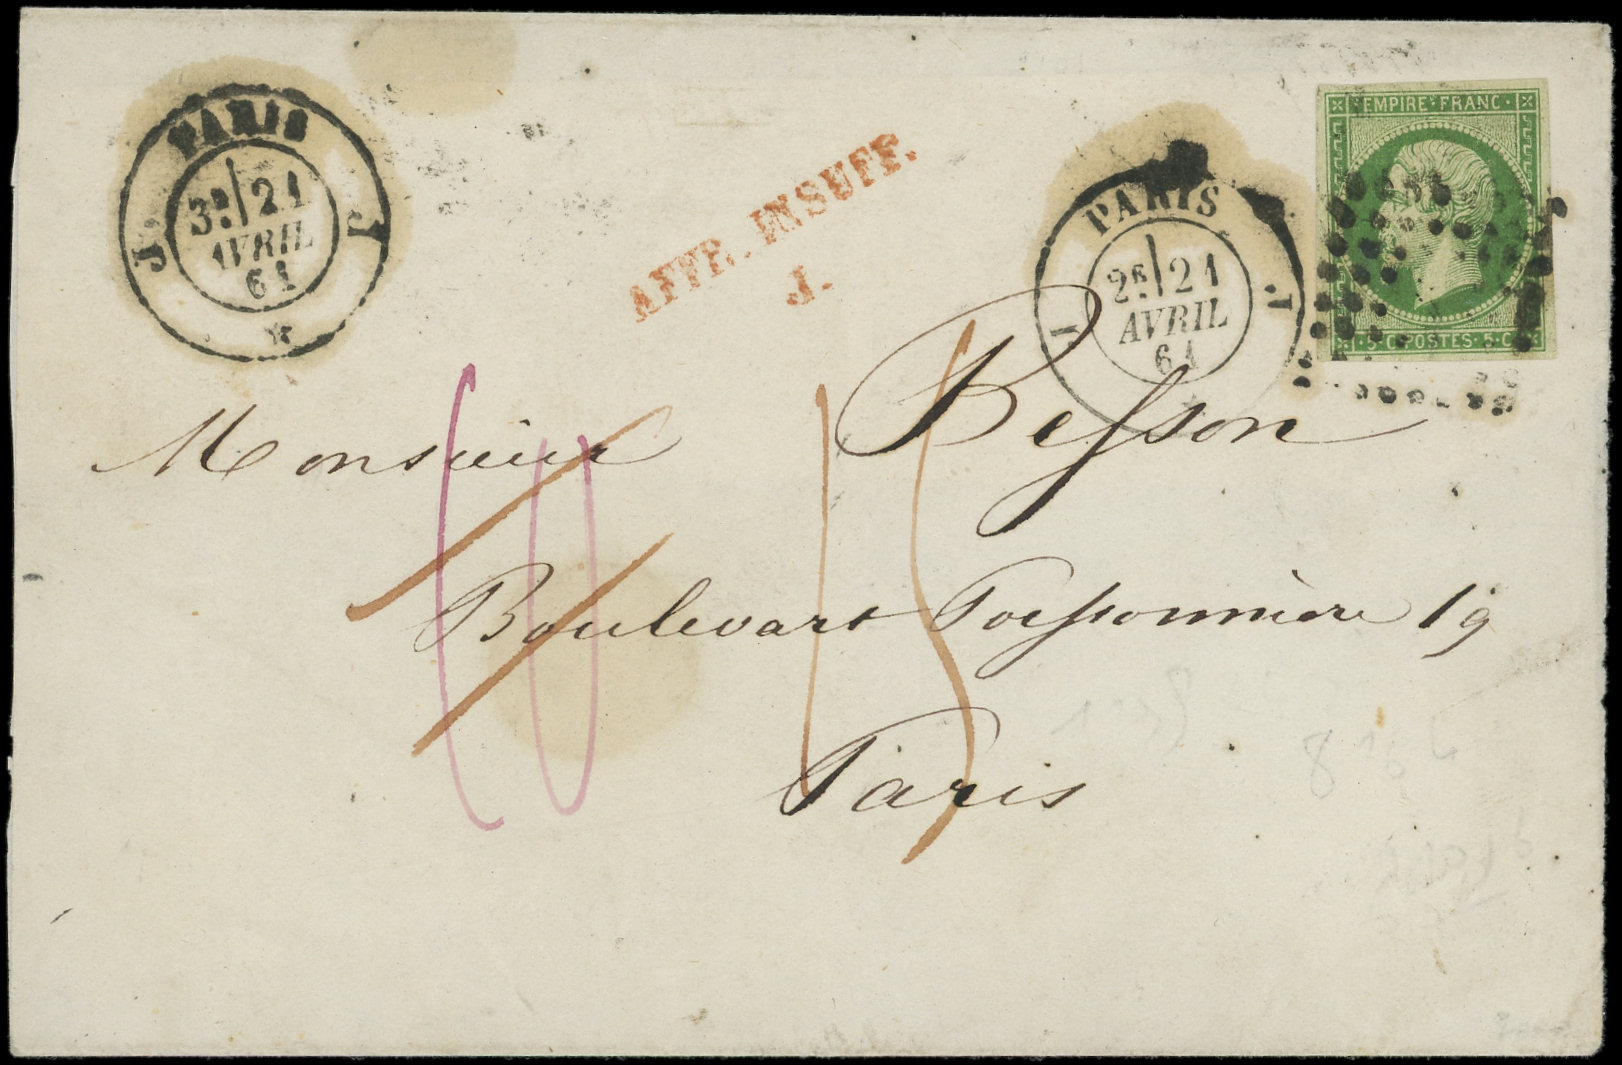 PARIS
J. J
3ᵉ 21
AVRIL
61
AFFR. INSUFF.
J.
PARIS
J J
2ᴱ 21
AVRIL
61
EMPIRE·FRANC·
·5·C·POSTES·5·C·
Monsieur Besson
10 15
Boulevart Poissonnière 19
Paris